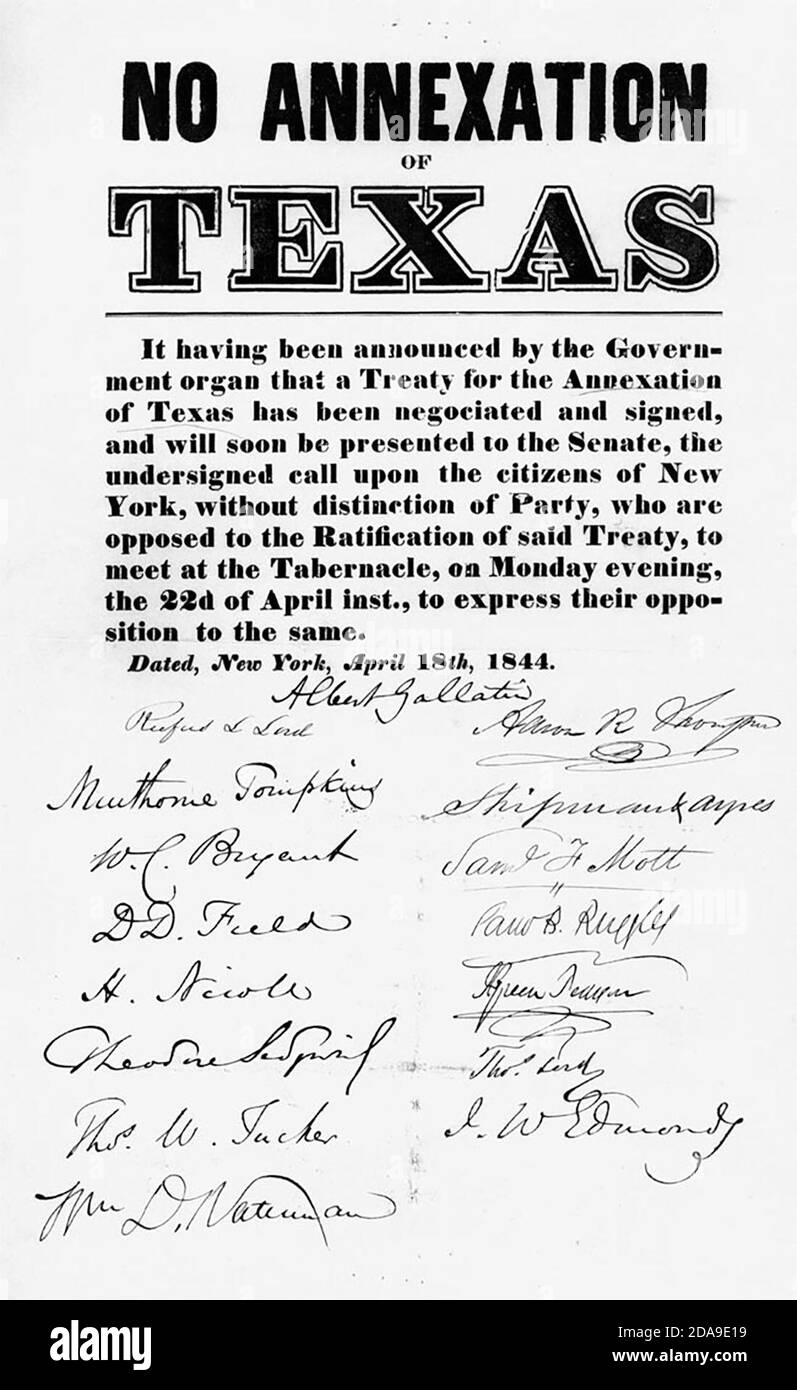 NO ANNEXATION
OF
TEXAS
It having been announced by the Govern-
ment organ that a Treaty for the Annexation
of Texas has been negociated and signed,
and will soon be presented to the Senate, the
undersigned call upon the citizens of New
York, without distinction of Party, who are
opposed to the Ratification of said Treaty, to
meet at the Tabernacle, on Monday evening,
the 22d of April inst., to express their oppo-
sition to the same.
Dated, New York, April 18th, 1844.
Albert Gallatin
Rufus L Lord
Aaron R Thompson
Minthorne Tompkins
Shipman & Ayres
W. C. Bryant
Saml F Mott
D D. Field
B. Ruggles
H. Nicoll
Theodore Sedgwick
Thos. Lord
Thos. W. Tucker
J. W Edmonds
Wm D. Waterman
alamy
Image ID: 2DA9E19
www.alamy.com